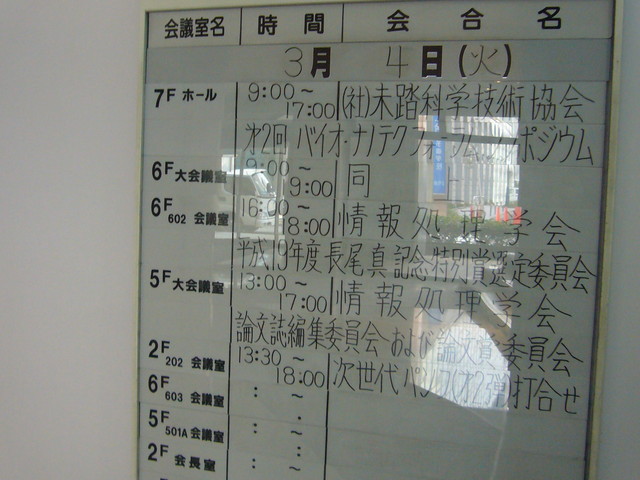 会議室名 時間 会合名
3月 4日(火)
7F ホール 9:00~17:00 (社)未踏科学技術協会
才2回 バイオ・ナノテクフォーラムシンポジウム
6F 大会議室 9:00~9:00 同 上
6F 602 会議室 16:00~18:00 情報処理学会
平成19年度長尾真記念特別賞選定委員会
5F 大会議室 13:00~17:00 情報処理学会
論文誌編集委員会および論文賞委員会
2F 202 会議室 13:30~18:00 次世代 (才2弾)打合せ
6F 603 会議室 : ~ :
5F 501A 会議室 : ~ :
2F 会長室 : ~